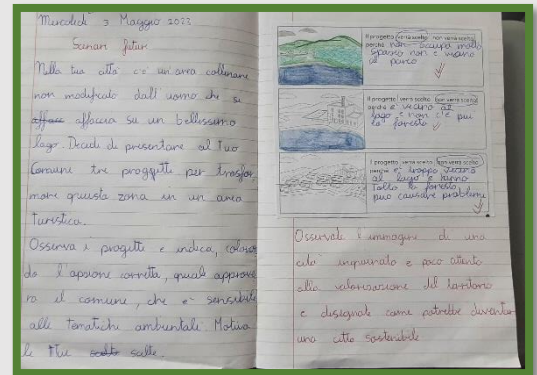 Mercoledì 3 Maggio 2023
Scenari futuri
Nella tua città c'è un'area collinare
non modificato dall'uomo che si
affacc affaccia su un bellissimo
lago. Decidi di presentare al Tuo
Comune tre progetti per trasfor,
mare questa zona in un area
Turistica.
Osserva i progetti e indica, coloran
do l'opsione corretta, quale approve
rà il comune, che è sensibile
alle tematiche ambientali. Motiva
le tue scelte salte.
Il progetto verrà scelto non verrà scelto
perché non occupa molto
spazio non è vicino
al parco
Il progetto verrà scelto non verrà scelto
perché è vicino al
lago e non c'è più
la foresta
Il progetto verrà scelto non verrà scelto
perché è troppo vicino
al lago e hanno
tolto la foresta
può causare problemi
Osservate l'immagine di una
città inquinata e poco attenta
alla valorizzazione del territorio
e disegnate come potrebbe diventare
una città sostenibile